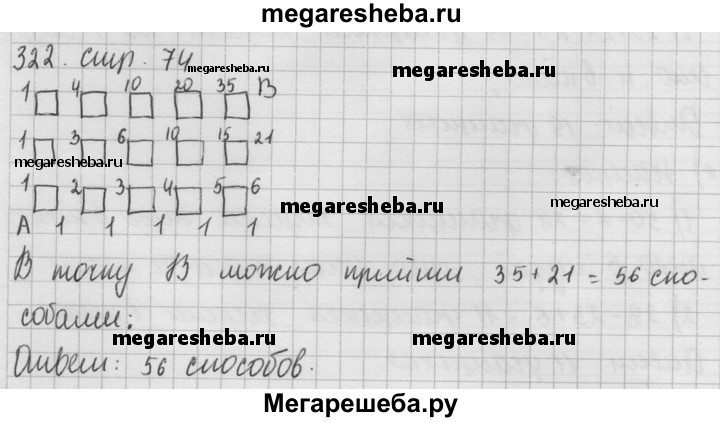 megaresheba.ru
322. стр. 74
megaresheba.ru
megaresheba.ru
1 4 10 20 35 В
1 3 6 10 15 21
megaresheba.ru
megaresheba.ru
1 2 3 4 5 6
megaresheba.ru
megaresheba.ru
А 1 1 1 1 1
В точку В можно прийти 35+21 = 56 спо-
собами:
megaresheba.ru
megaresheba.ru
Ответ: 56 способов.
Мегарешеба.ру